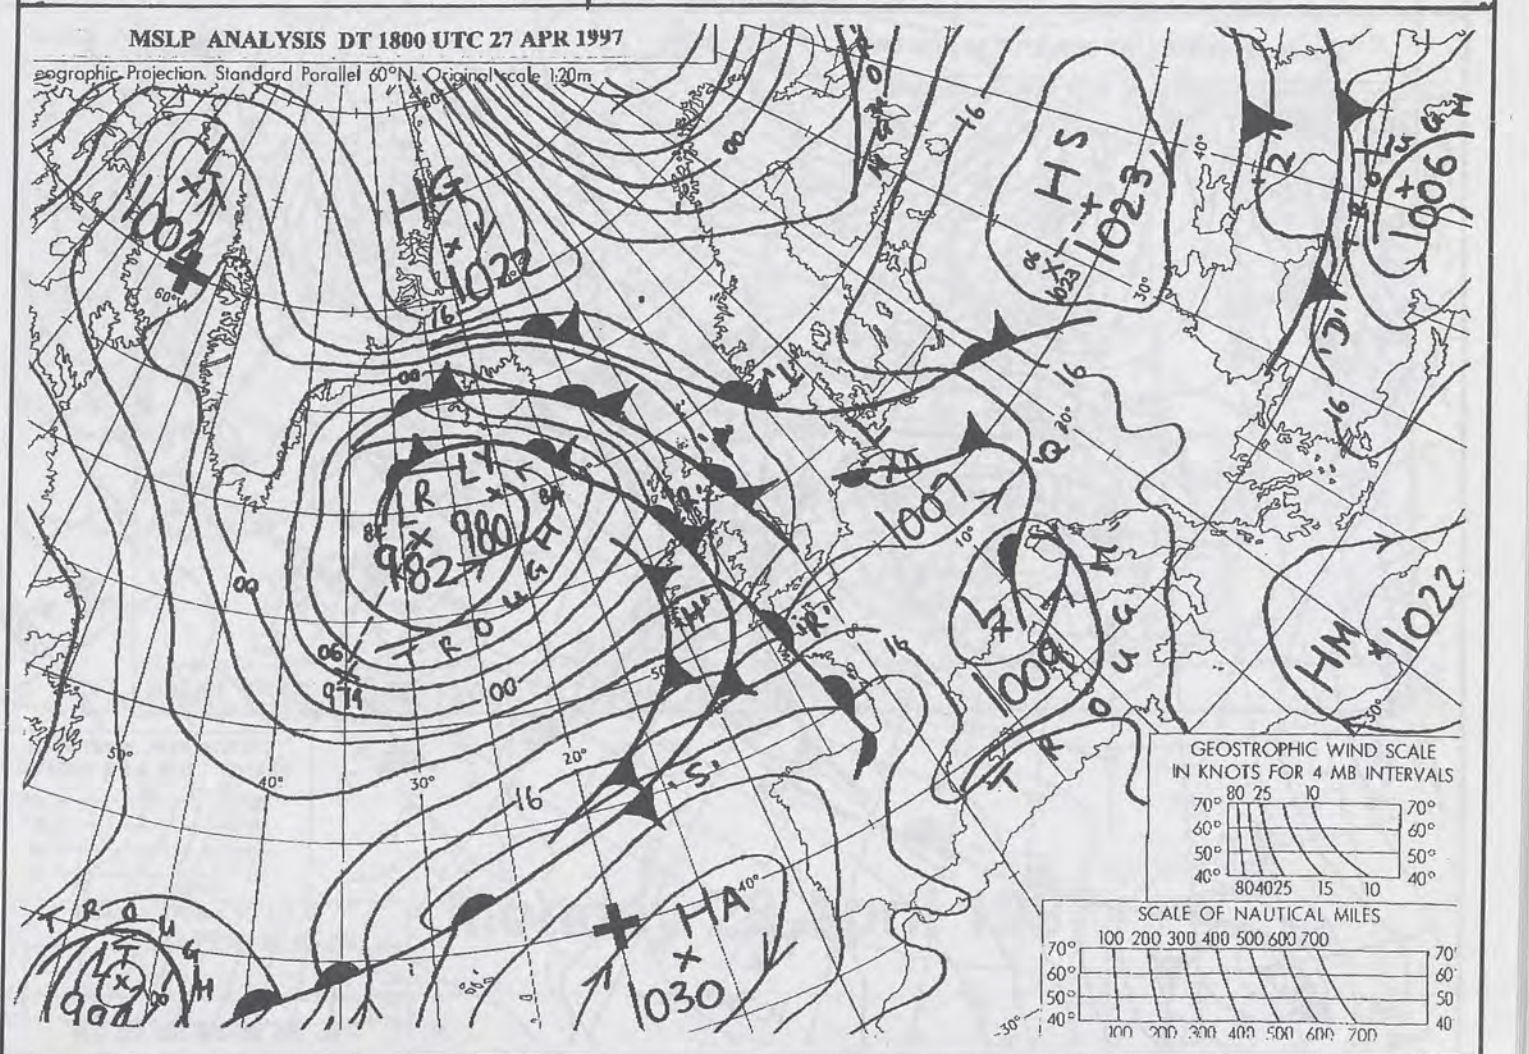 MSLP ANALYSIS DT 1800 UTC 27 APR 1997
eographic Projection. Standard Parallel 60°N. Original scale 1:20m
80°
16
00
H S
1023
06
1023
40°
30°
'Z'
1006
H G
1022
1004
60°
16
00
'T'
16
20°
'Q'
'D'
16
L R
982
L Y
980
T R O U G H
00
06
979
00
1007
10°
L
1009
T R O U G H
H M
1022
50°
'H'
'R'
16
50°
50°
40°
30°
20°
16
'S'
40°
H A
030
T R O U G H
L T
994
00
-30°
GEOSTROPHIC WIND SCALE
IN KNOTS FOR 4 MB INTERVALS
80 25 10
70° 70°
60° 60°
50° 50°
40° 40°
80 40 25 15 10
SCALE OF NAUTICAL MILES
100 200 300 400 500 600 700
70° 70°
60° 60°
50° 50
40° 40
100 200 300 400 500 600 700